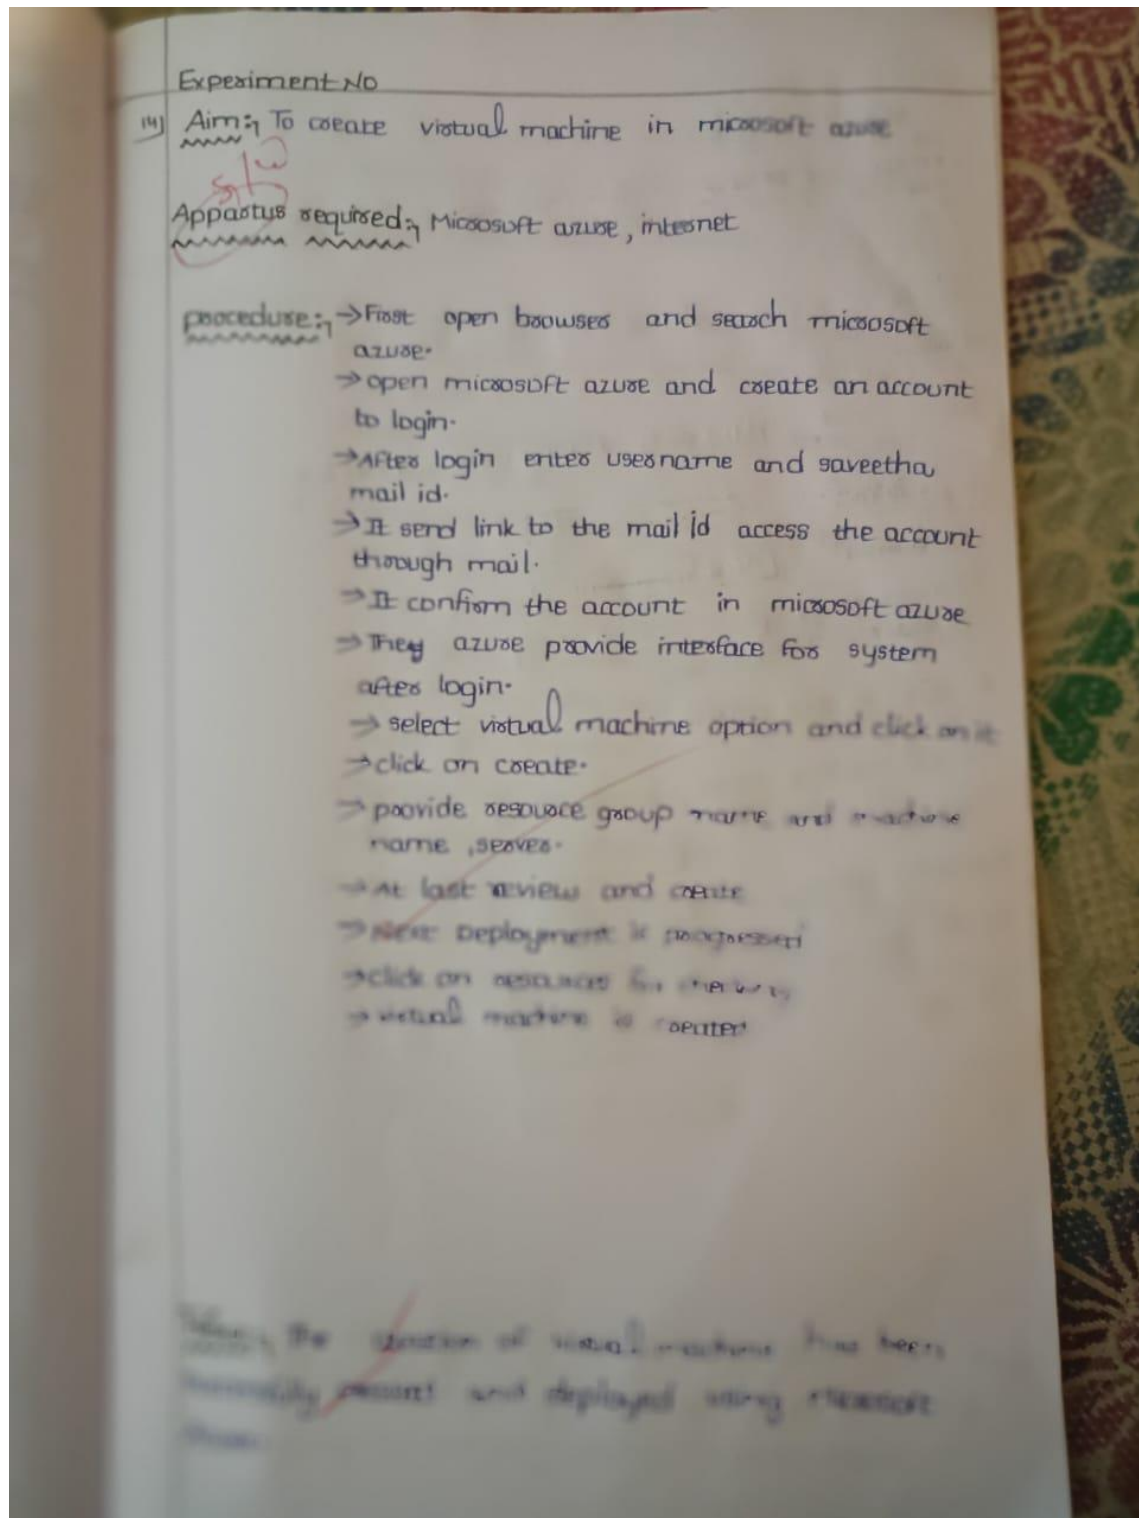 Experiment No
14) Aim:- To create virtual machine in microsoft azure
Appartus required:- Microsoft azure, internet
procedure:- → First open browser and search microsoft
azure.
→ open microsoft azure and create an account
to login.
→ After login enter username and saveetha
mail id.
→ It send link to the mail id access the account
through mail.
→ It confirm the account in microsoft azure
→ They azure provide interface for system
after login.
→ select virtual machine option and click on it
→ click on create.
→ provide resource group name and machine
name, server.
→ At last review and create
→ Next Deployment is progressed
→ click on resources for
→ virtual machine is created
the creation of virtual machine has been
and deployed using